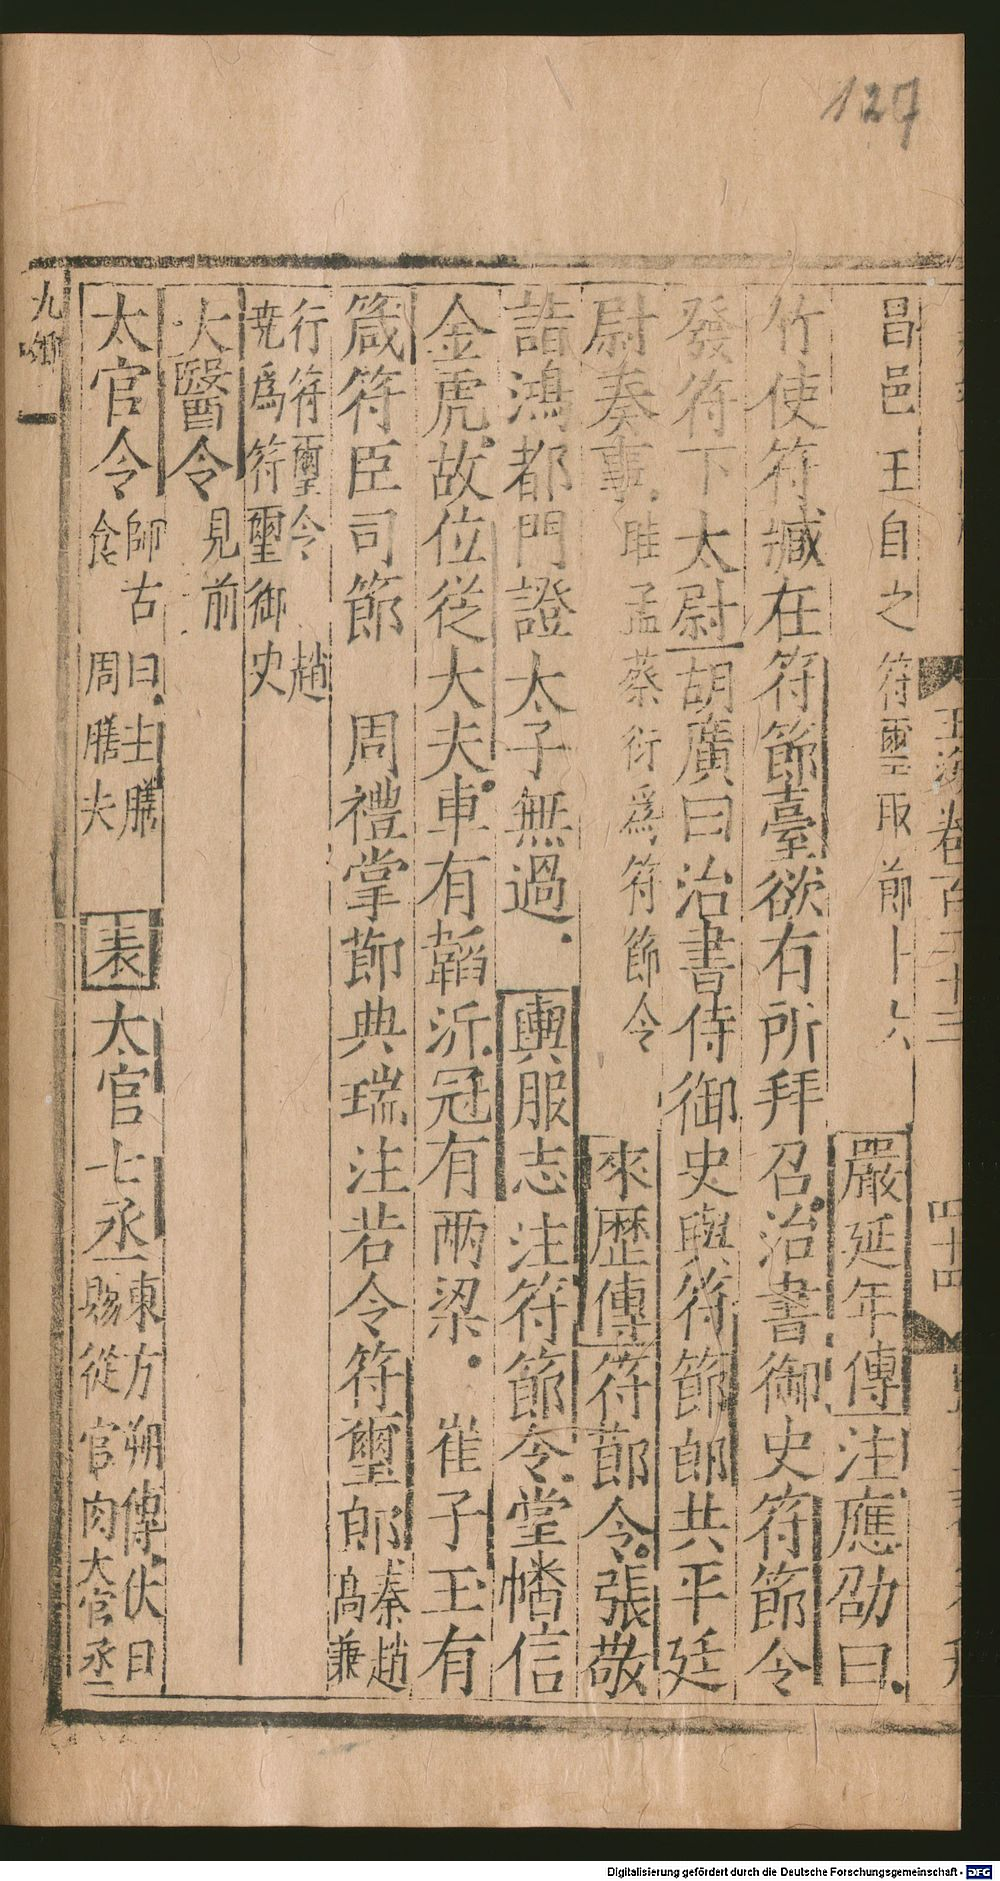 127
玉海卷百二十三
四十四
昌邑王自之符璽取節十六 嚴延年傳注應劭曰
竹使符臧在符節臺欲有所拜召治書御史符節令
發符下太尉胡廣曰治書侍御史與符節郎共平廷
尉奏事眭孟蔡衍爲符節令 來歷傳符節令張敬
詣鴻都門證太子無過 輿服志注符節令堂幡信
金虎故位從大夫車有韜沂冠有兩梁 崔子玉有
箴符臣司節 周禮掌節典瑞注若今符璽郎秦趙高兼
行符璽令趙
堯爲符璽御史
太醫令見前
太官令師古曰主膳食周膳夫 表太官七丞東方朔傳伏日賜從官肉大官丞
九卿
Digitalisierung gefördert durch die Deutsche Forschungsgemeinschaft - DFG